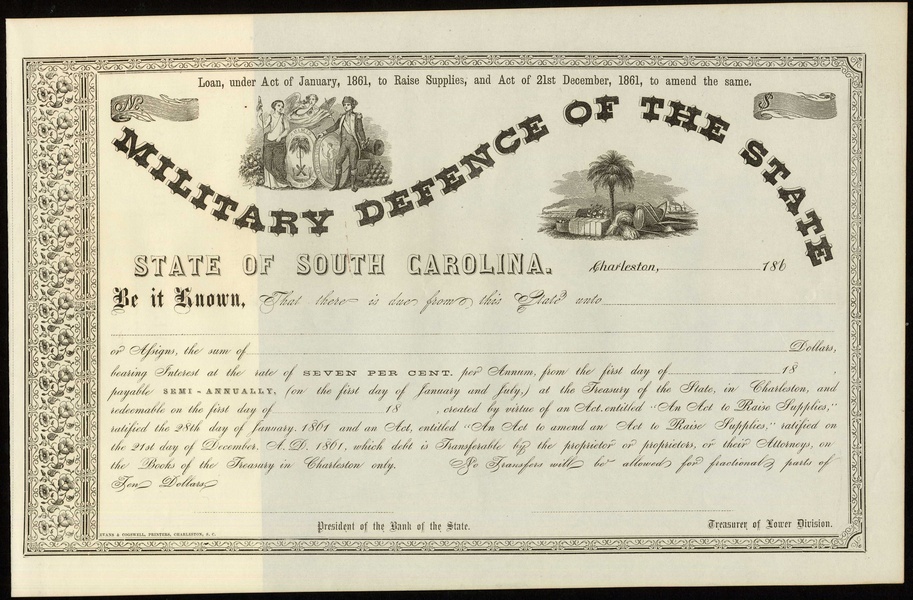 Loan, under Act of January, 1861, to Raise Supplies, and Act of 21st December, 1861, to amend the same.
No.
$
MILITARY DEFENCE OF THE STATE
STATE OF SOUTH CAROLINA.
Charleston, 186
Be it Known, That there is due from this State unto
or Assigns, the sum of Dollars,
bearing Interest at the rate of SEVEN PER CENT. per Annum, from the first day of 18 ,
payable SEMI-ANNUALLY, (on the first day of January and July,) at the Treasury of the State, in Charleston, and
redeemable on the first day of 18 , created by virtue of an Act, entitled "An Act to Raise Supplies,"
ratified the 28th day of January, 1861 and an Act, entitled "An Act to amend an Act to Raise Supplies," ratified on
the 21st day of December, A. D. 1861, which debt is Transferable by the proprietor or proprietors, or their Attorneys, on
the Books of the Treasury in Charleston only. No Transfers will be allowed for fractional parts of
Ten Dollars.
President of the Bank of the State.
Treasurer of Lower Division.
EVANS & COGSWELL, PRINTERS, CHARLESTON, S. C.